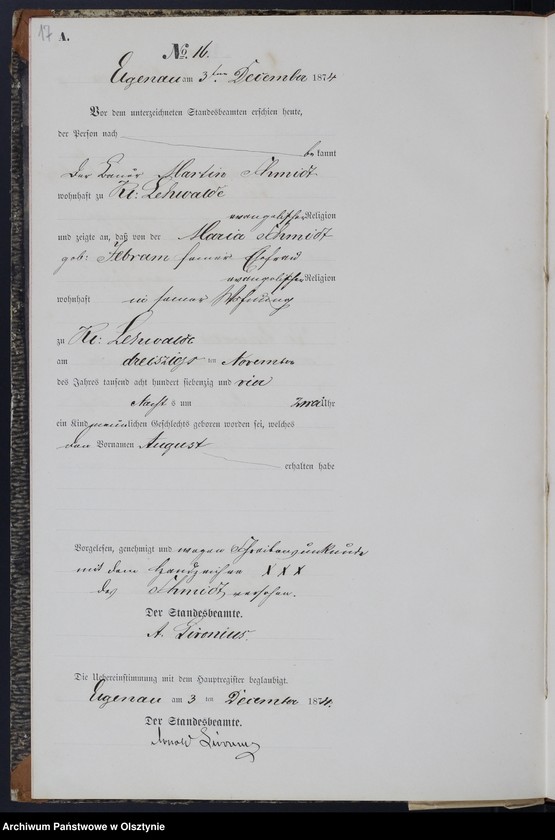 17
A.
No. 16.
Elgenau am 3ten December 1874
Vor dem unterzeichneten Standesbeamten erschien heute,
der Person nach
bekannt
der Bauer Martin Schmidt
wohnhaft zu Kl: Lehwalde
evangelischer Religion
und zeigte an, daß von der Maria Schmidt
geb: seiner Ehefrau
evangelischer Religion
wohnhaft in seiner Wohnung
zu Kl: Lehwalde
am dreiszigs ten November
des Jahres tausend acht hundert siebenzig und vier
Nachts um zwei Uhr
ein Kind männlichen Geschlechts geboren worden sei, welches
den Vornamen August
erhalten habe
Vorgelesen, genehmigt und wegen Schreibensunkunde
mit dem Handzeichen X X X
des Schmidt versehen.
Der Standesbeamte.
A.
Die Uebereinstimmung mit dem Hauptregister beglaubigt.
Elgenau am 3 ten December 1874.
Der Standesbeamte.
Arnold
Archiwum Państwowe w Olsztynie